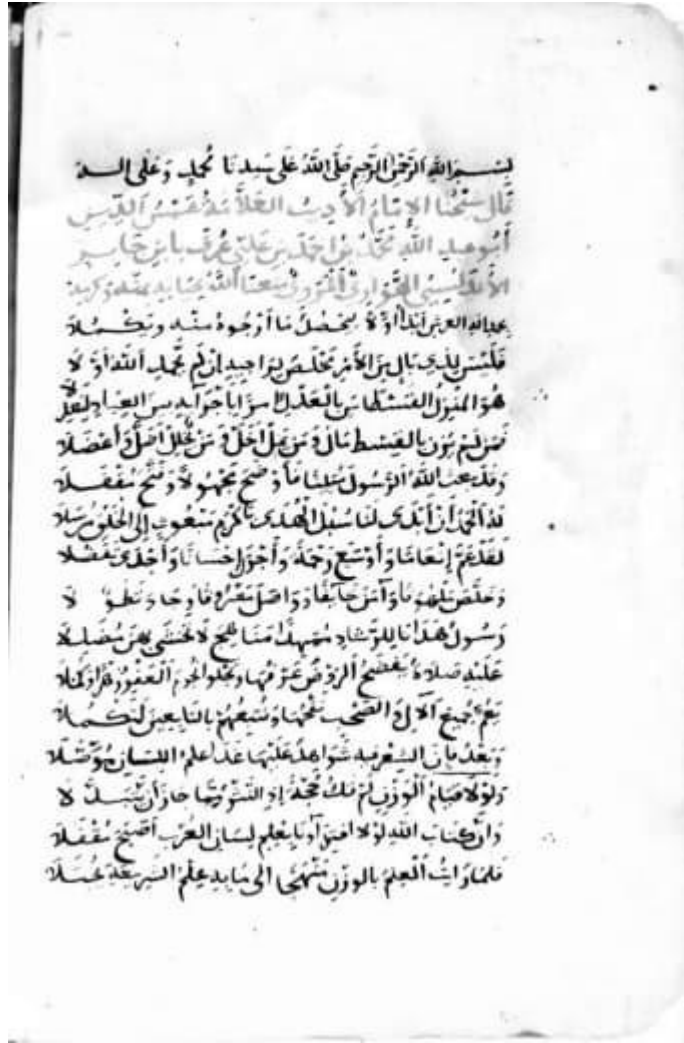 بسم الله الرحمن الرحيم صلى الله على سيدنا محمد وعلى اله
قال شيخنا الإمام الأديب العلامة شمس الدين
أبو عبد الله محمد بن احمد بن علي عرف بابن جابر
الأندلسي الهواري نفعنا الله به بمنه وكرمه
بحمد اله العرش أبدأ أولا يحصل ما أرجوه منه ويكملا
فليس لذي بال من الأمر مخلص لراجيه إن لم يحمد الله أولا
هو المنزل القسطاس بالعدل
فمن لم يزن بالقسط مال ومن يمل اخل ومن يخلل اضل وأعضلا
وقد بعث الله الرسول مبينا فأوضح مجهولا وفتح مقفلا
له الحمد أن أبدى لنا سبل الهدى بأكرم مبعوث إلى الخلق مرسلا
لقد عم إنعاما وأوسع رحمة وأجزل إحسانا وأجدى تفضلا
وخلص ملهوفا وآمن خايفا وواصل معروفا وجاد تطولا
رسول هدانا للرشاد مناهج لا تخشى بهن مضللا
عليه صلاة يفضح الروض عرفها
يعم جميع الآل والصحب وتتبعهم بالتابعين لتكملا
وبعد فإن الشعر فيه شواهد عليها غدا علم اللسان مؤصلا
ولولا قيام الوزن لم تك حجة إذ النثر مما جاز أن يتبدلا
وان كتاب الله لولا بعلم لسان العرب أصبح مقفلا
فلما رايت العلم بالوزن منهجا الى ما به علم الشريعة